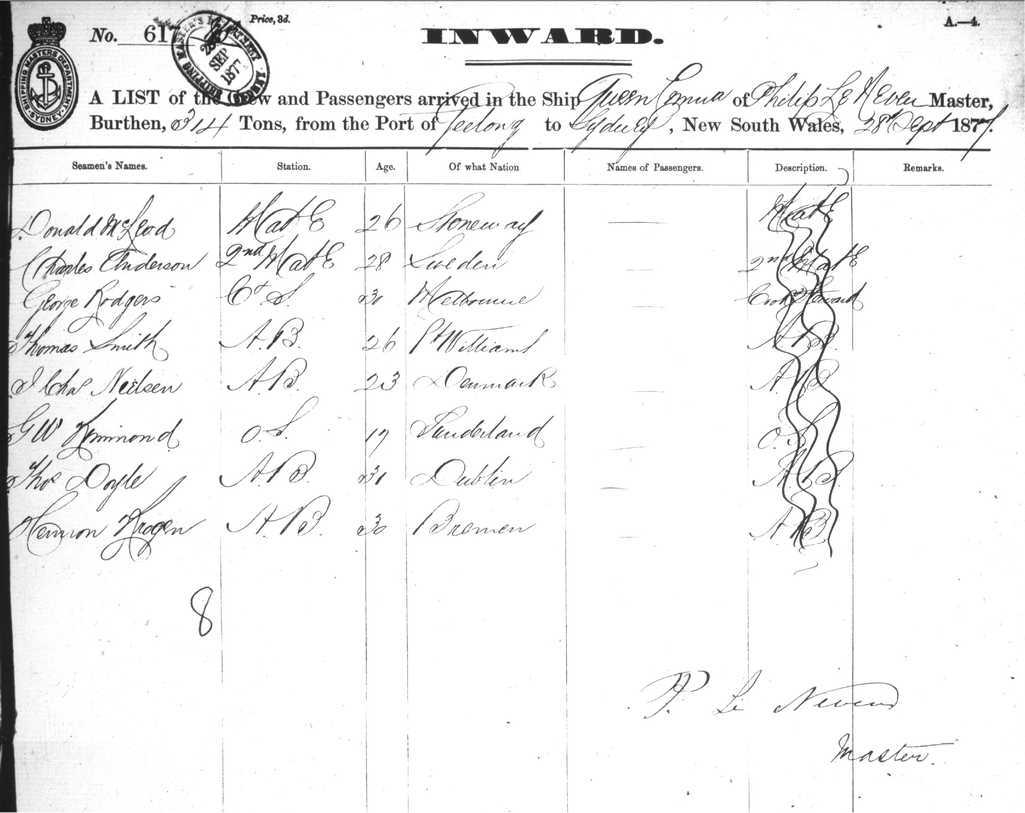 No. 617
Price, 3d.
SHIPPING MASTER'S DEPARTMENT SYDNEY
28 SEP 1877
INWARD.
A.—4.
SHIPPING MASTERS DEPARTMENT SYDNEY
A LIST of the Crew and Passengers arrived in the Ship Queen Emma of Philip Le Neveu Master,
Burthen, 314 Tons, from the Port of Geelong to Sydney, New South Wales, 28 Sept 1877.
Seamen's Names. Station. Age. Of what Nation Names of Passengers. Description. Remarks.
Donald McLeod Mate 26 Stoneway — Mate
Charles Anderson 2nd Mate 28 Sweden — 2nd Mate
George Rodgers C & S 31 Melbourne — Cook & Steward
Thomas Smith A.B. 26 Pt Williams — A B
J Chas Neilsen A.B. 23 Denmark — A B
G W O.S. 19 Sunderland — O.S
Thos Doyle A.B. 31 Dublin — A.B
Krogen A.B. 30 Bremen — A.B
8
P. Le Neveu
Master.